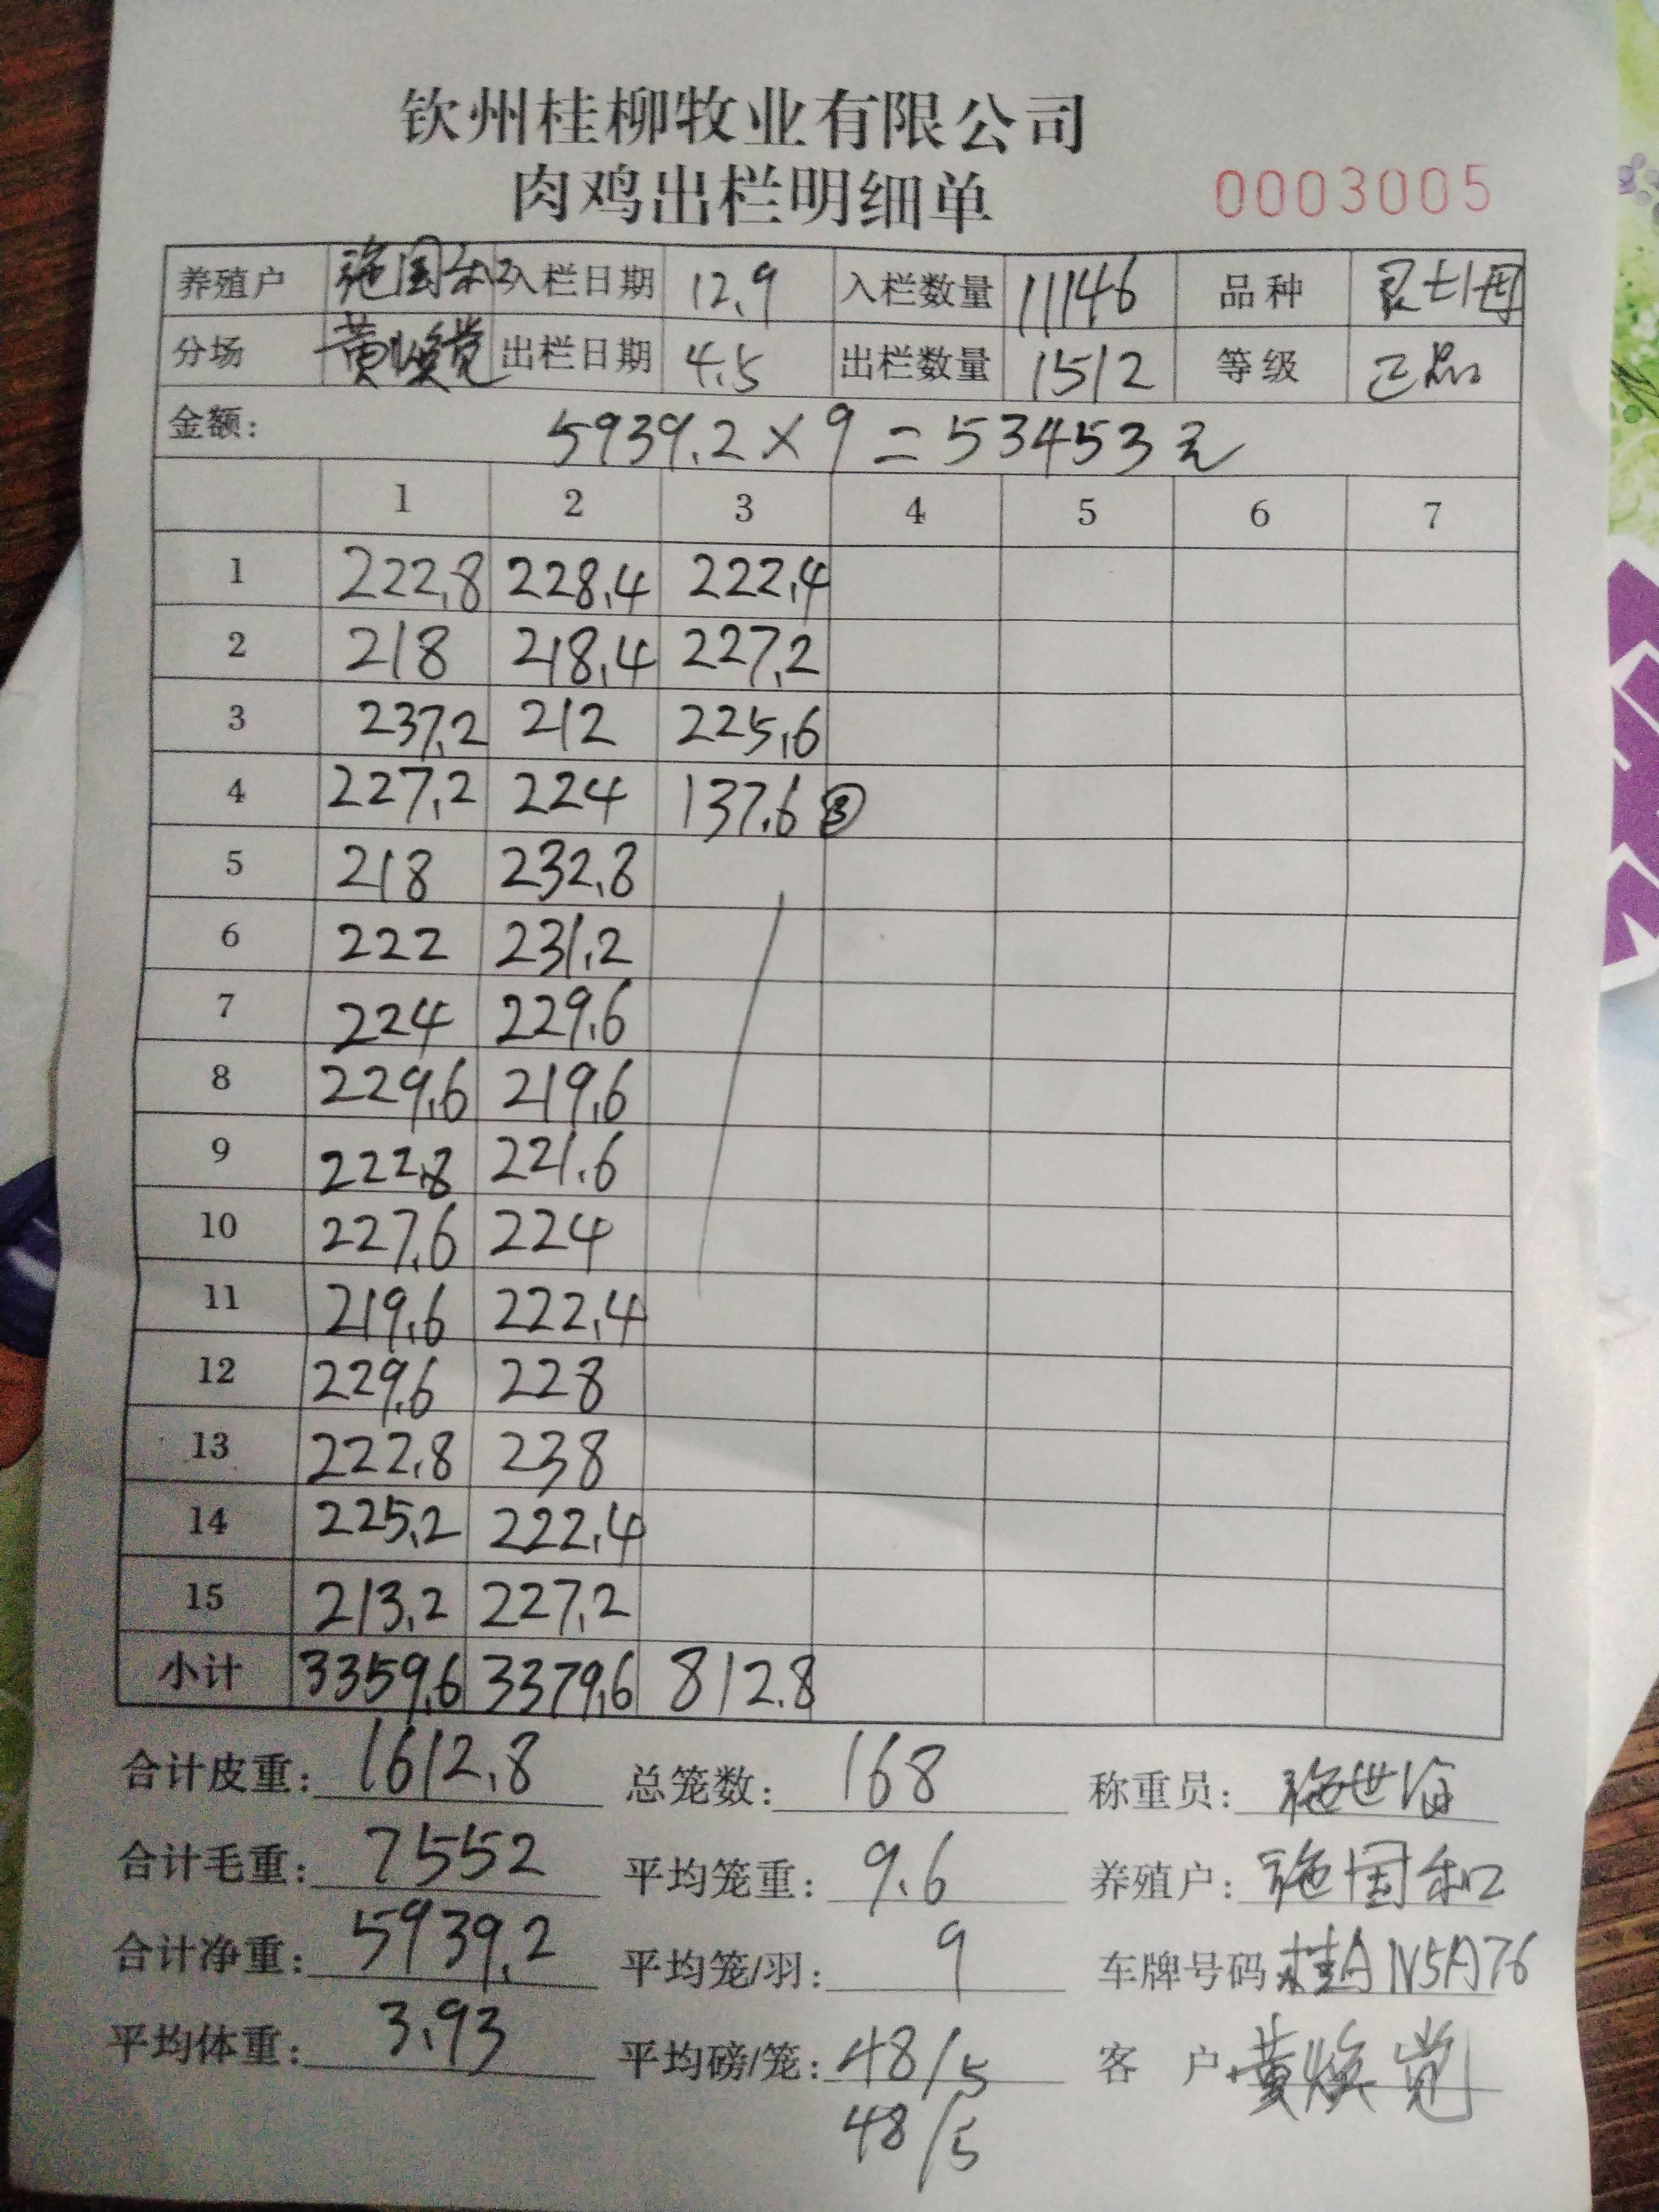 钦州桂柳牧业有限公司
肉鸡出栏明细单 0003005
养殖户 施国和 入栏日期 12.9 入栏数量 11146 品种
分场 黄焕党 出栏日期 4.5 出栏数量 1512 等级 正品
金额: 5939.2×9=53453元
1 2 3 4 5 6 7
1 222.8 228.4 222.4
2 218 218.4 227.2
3 237.2 212 225.6
4 227.2 224 137.6 ③
5 218 232.8
6 222 231.2
7 224 229.6
8 229.6 219.6
9 222.8 221.6
10 227.6 224
11 219.6 222.4
12 229.6 228
13 222.8 238
14 225.2 222.4
15 213.2 227.2
小计 3359.6 3379.6 812.8
合计皮重: 1612.8 总笼数: 168 称重员: 施世海
合计毛重: 7552 平均笼重: 9.6 养殖户: 施国和
合计净重: 5939.2 平均笼/羽: 9 车牌号码 桂AN5A76
平均体重: 3.93 平均磅/笼: 48/5 客 户 黄焕党
48/5